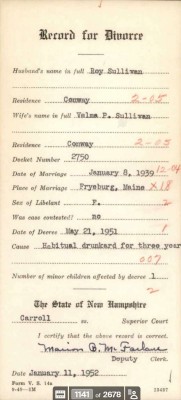 Record for Divorce
Husband's name in full Roy Sullivan
Residence Conway 2-05
Wife's name in full Velma P. Sullivan
Residence Conway 2-05
Docket Number 2750
Date of Marriage January 8, 1939 12-04
Place of Marriage Fryeburg, Maine X18
Sex of Libelant F. 2
Was case contested? no
Date of Decree May 21, 1951 1
Cause Habitual drunkard for three year
007
Number of minor children affected by decree 1
2
The State of New Hampshire
Carroll ss. Superior Court
I certify that the above record is correct.
Marion B. McFarlane
Deputy Clerk.
Date January 11, 1952
Form V. S. 14a
1141 of 2678